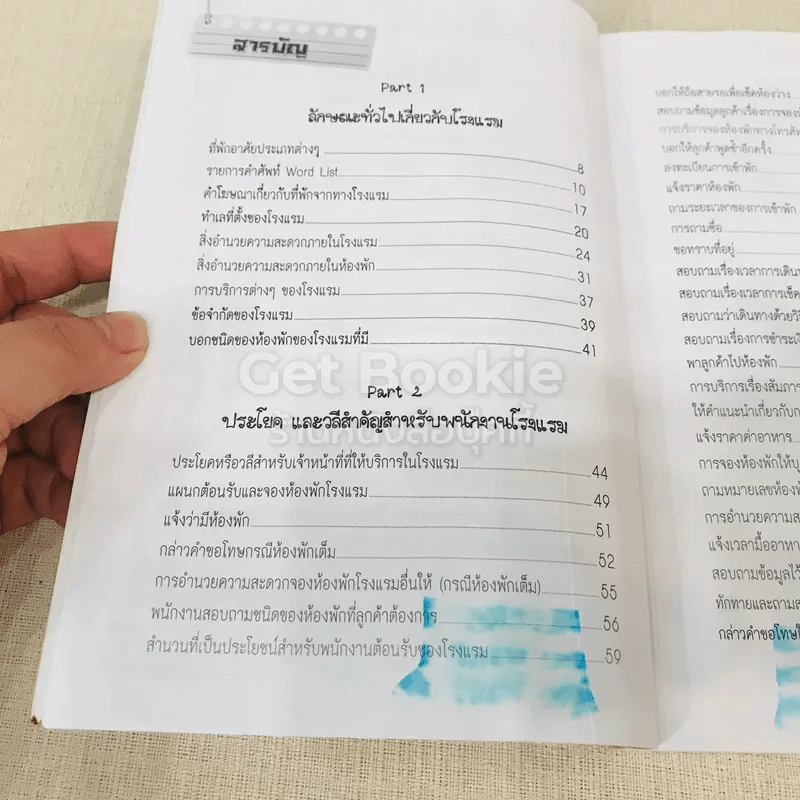 สารบัญ
Part 1
ลักษณะทั่วไปเกี่ยวกับโรงแรม
ที่พักอาศัยประเภทต่างๆ 8
รายการคำศัพท์ Word List 10
คำโฆษณาเกี่ยวกับที่พักจากทางโรงแรม 17
ทำเลที่ตั้งของโรงแรม 20
สิ่งอำนวยความสะดวกภายในโรงแรม 24
สิ่งอำนวยความสะดวกภายในห้องพัก 31
การบริการต่างๆ ของโรงแรม 37
ข้อจำกัดของโรงแรม 39
บอกชนิดของห้องพักของโรงแรมที่มี 41
Get Bookie
ร้านหนังสือบุ๊คกี้
Part 2
ประโยค และวลีสำคัญสำหรับพนักงานโรงแรม
ประโยคหรือวลีสำหรับเจ้าหน้าที่ที่ให้บริการในโรงแรม 44
แผนกต้อนรับและจองห้องพักโรงแรม 49
แจ้งว่ามีห้องพัก 51
กล่าวคำขอโทษกรณีห้องพักเต็ม 52
การอำนวยความสะดวกจองห้องพักโรงแรมอื่นให้ (กรณีห้องพักเต็ม) 55
พนักงานสอบถามชนิดของห้องพักที่ลูกค้าต้องการ 56
สำนวนที่เป็นประโยชน์สำหรับพนักงานต้อนรับของโรงแรม 59
บอกให้ถือสายรอเพื่อเช็คห้องว่าง
สอบถามข้อมูลลูกค้าเรื่องการจอง
การบริการจองห้องพักทางโทรศั
บอกให้ลูกค้าพูดซ้ำอีกครั้ง
ลงทะเบียนการเข้าพัก
แจ้งราคาห้องพัก
ถามระยะเวลาของการเข้าพัก
การถามชื่อ
ขอทราบที่อยู่
สอบถามเรื่องเวลาการเดินท
สอบถามเรื่องเวลาการเช็ค
สอบถามว่าเดินทางด้วยวิ
สอบถามเรื่องการชำระเงิ
พาลูกค้าไปห้องพัก
การบริการเรื่องสัมภาร
ให้คำแนะนำเกี่ยวกับก
แจ้งราคาค่าอาหาร
การจองห้องพักให้บุ
ถามหมายเลขห้องพั
การอำนวยความส
แจ้งเวลามื้ออาหา
สอบถามข้อมูลไว้
ทักทายและถามส
กล่าวคำขอโทษใ